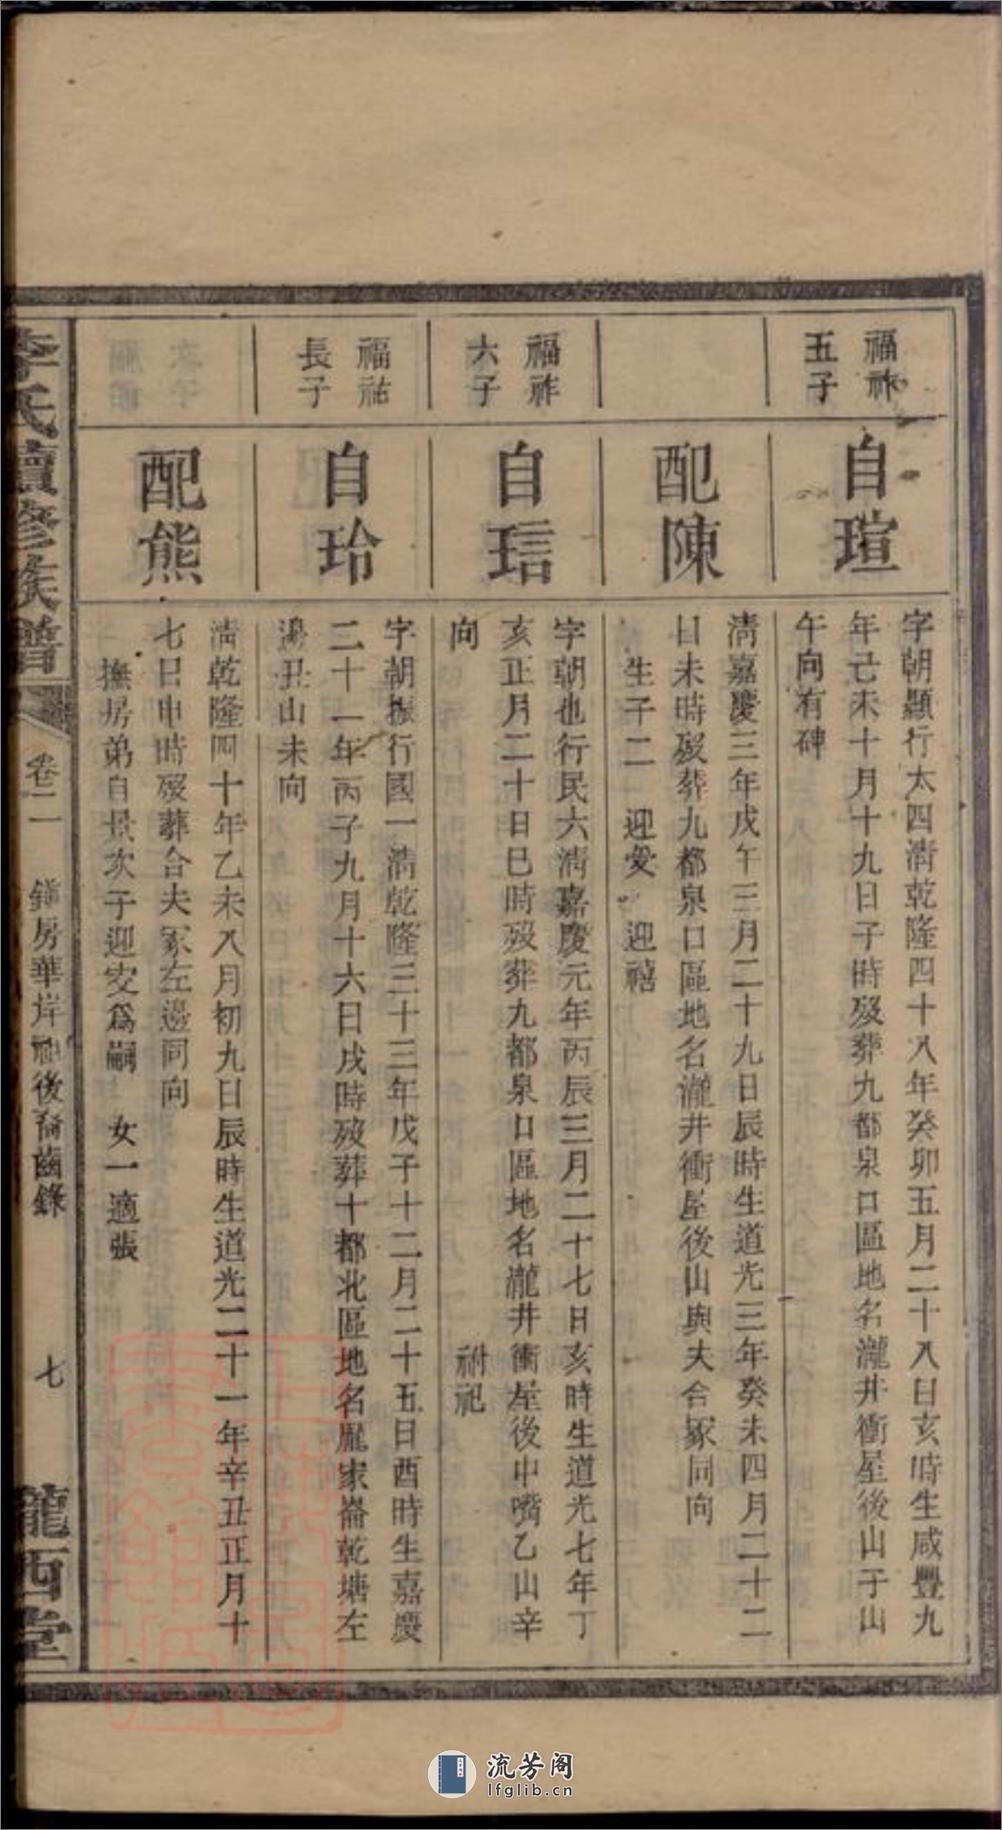 福祚
五子
自瑄
字朝顯行太四清乾隆四十八年癸卯五月二十八日亥時生咸豐九
年己未十月十九日子時歿葬九都泉口區地名瀧井衝屋後山子山
午向有碑
配陳
清嘉慶三年戊午三月二十九日辰時生道光三年癸未四月二十二
日未時歿葬九都泉口區地名瀧井衝屋後山與夫合冢同向
生子二 迎愛 迎禧
福祚
六子
自琂
字朝也行民六清嘉慶元年丙辰三月二十七日亥時生道光七年丁
亥正月二十日巳時歿葬九都泉口區地名瀧井衝屋後中嘴乙山辛
向 祔祀
福祐
長子
自玲
字朝振行國一清乾隆三十三年戊子十二月二十五日酉時生嘉慶
二十一年丙子九月十六日戌時歿葬十都北區地名龐家崙乾塘左
邊丑山未向
配熊
清乾隆四十年乙未八月初九日辰時生道光二十一年辛丑正月十
七日申時歿葬合夫冢左邊同向
撫房弟自景次子迎安爲嗣 女一適張
李氏續修族譜
卷二 鎮房華岸祉後裔齒錄
七
隴西堂
流芳阁
lfglib.cn